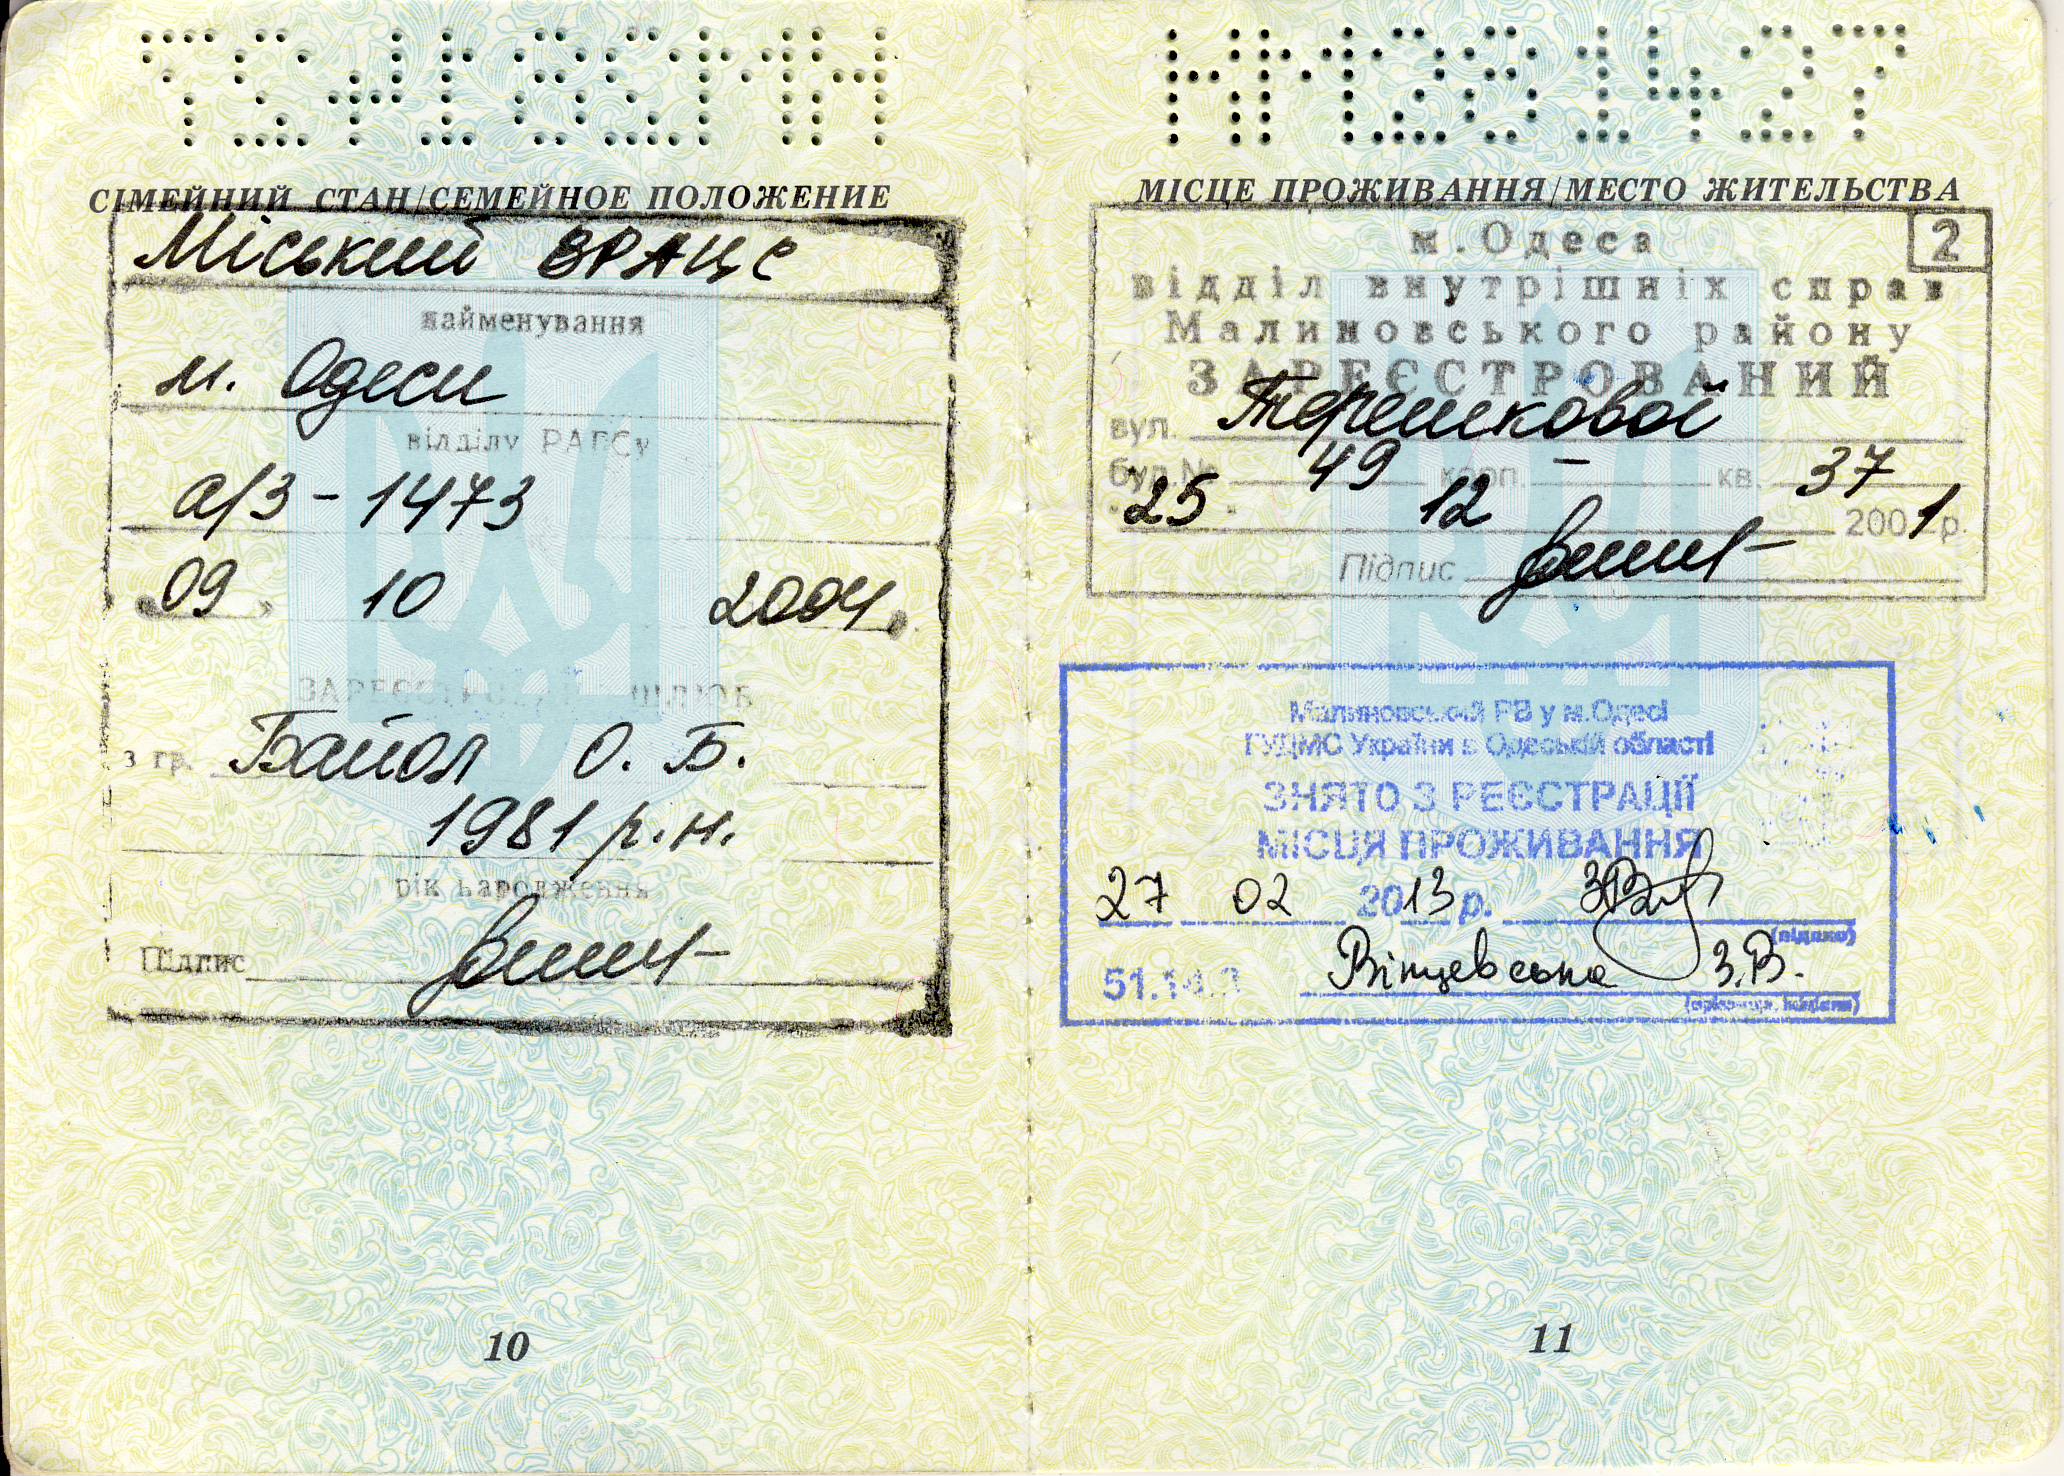 НМ281427
СІМЕЙНИЙ СТАН/СЕМЕЙНОЕ ПОЛОЖЕНИЕ
Міський ВРАЦС
найменування
м. Одеси
відділу РАГСу
а/з - 1473
09 10 2004
ЗАРЕЄСТРОВАНО ШЛЮБ
з гр. Байол О. Б.
1981 р.н.
рік народження
Підпис
10
НМ281427
МІСЦЕ ПРОЖИВАННЯ/МЕСТО ЖИТЕЛЬСТВА
м.Одеса 2
відділ внутрішніх справ
Малиновського району
ЗАРЕЄСТРОВАНИЙ
вул. Терешкової
буд.№ 49 корп. - кв. 37
"25" 12 2001р.
Підпис
Малиновський РВ у м.Одесі
ГУДМС України в Одеській області
ЗНЯТО З РЕЄСТРАЦІЇ
МІСЦЯ ПРОЖИВАННЯ
27 02 2013 р.
(підпис)
Вінцевська З.В.
11